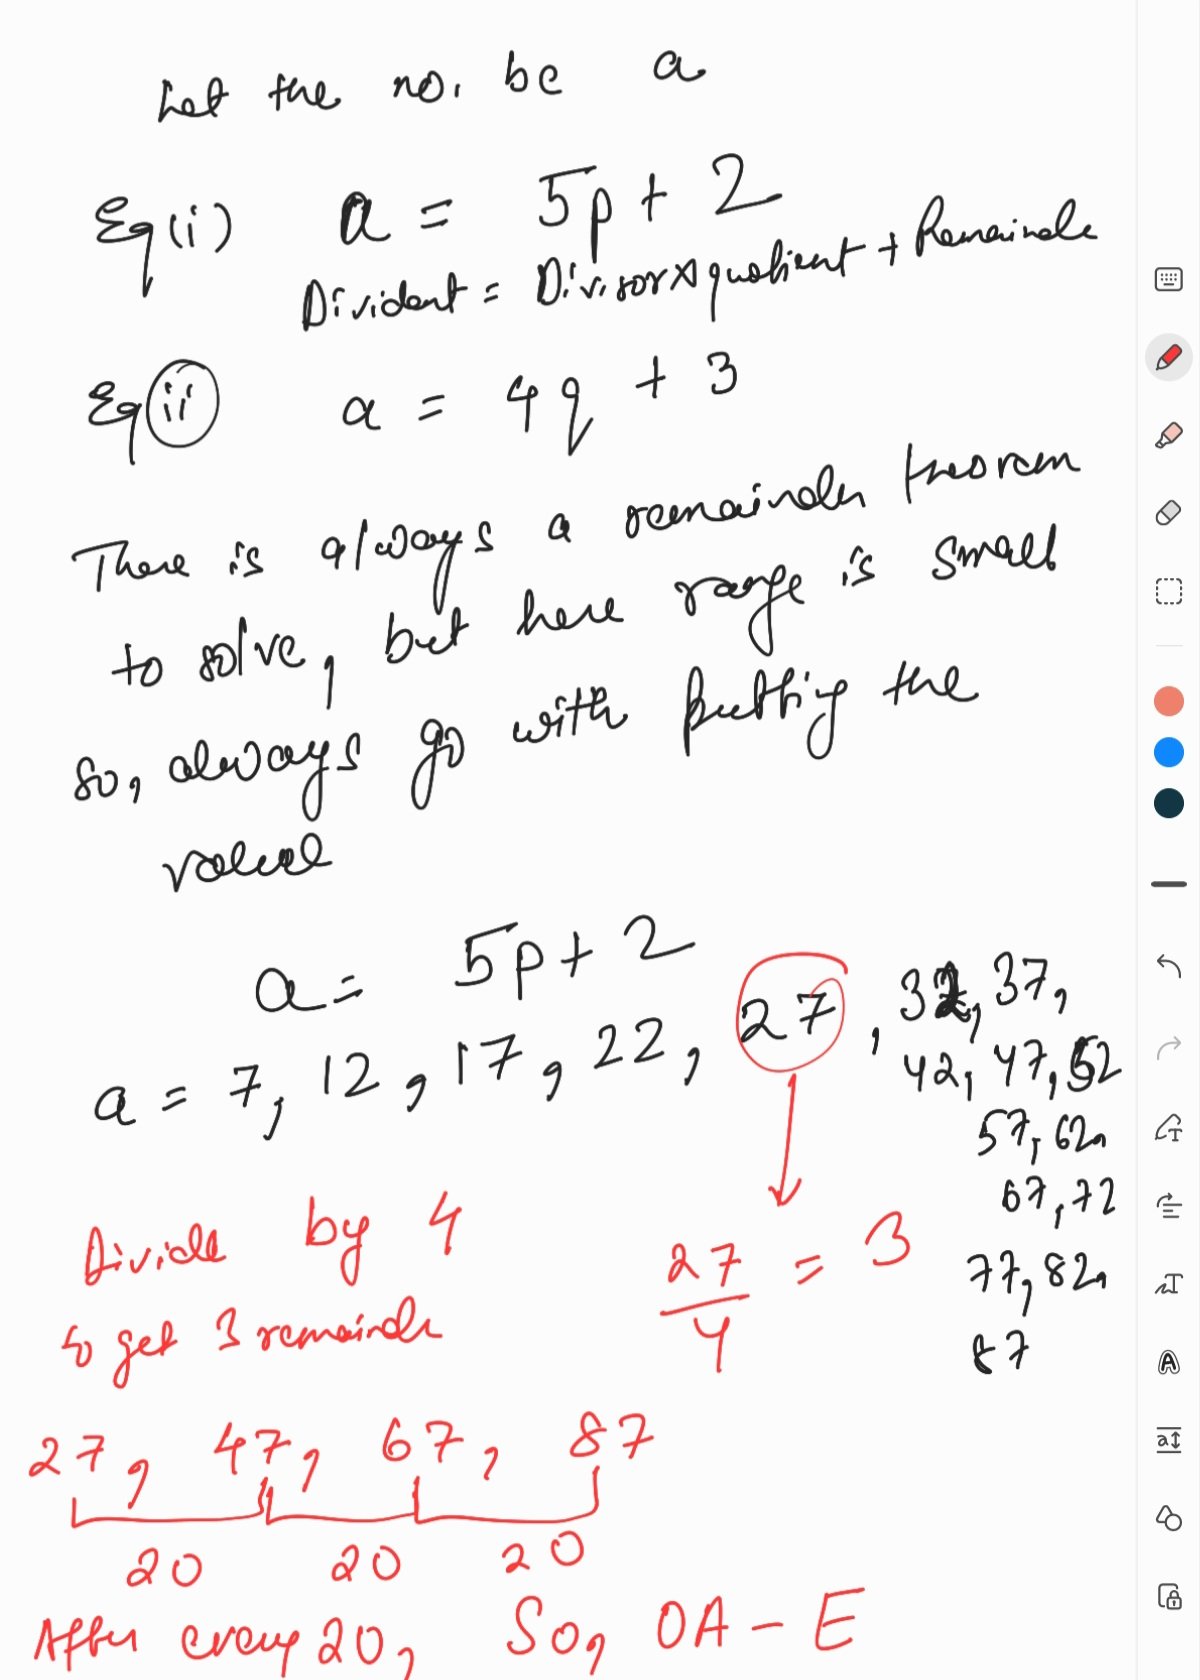 Let the no. be a
Eq(i) a = 5p + 2
Divident = Divisor × quotient + Remainde
Eq(ii) a = 4q + 3
There is always a remainder theorem
to solve, but here range is small
so, always go with putting the
value
a = 5p + 2
a = 7, 12, 17, 22, 27, 32, 37,
42, 47, 52
57, 62,
67, 72
77, 82,
87
Divide by 4
to get 3 remainde
27/4 = 3
27, 47, 67, 87
20 20 20
After every 20, So, OA - E